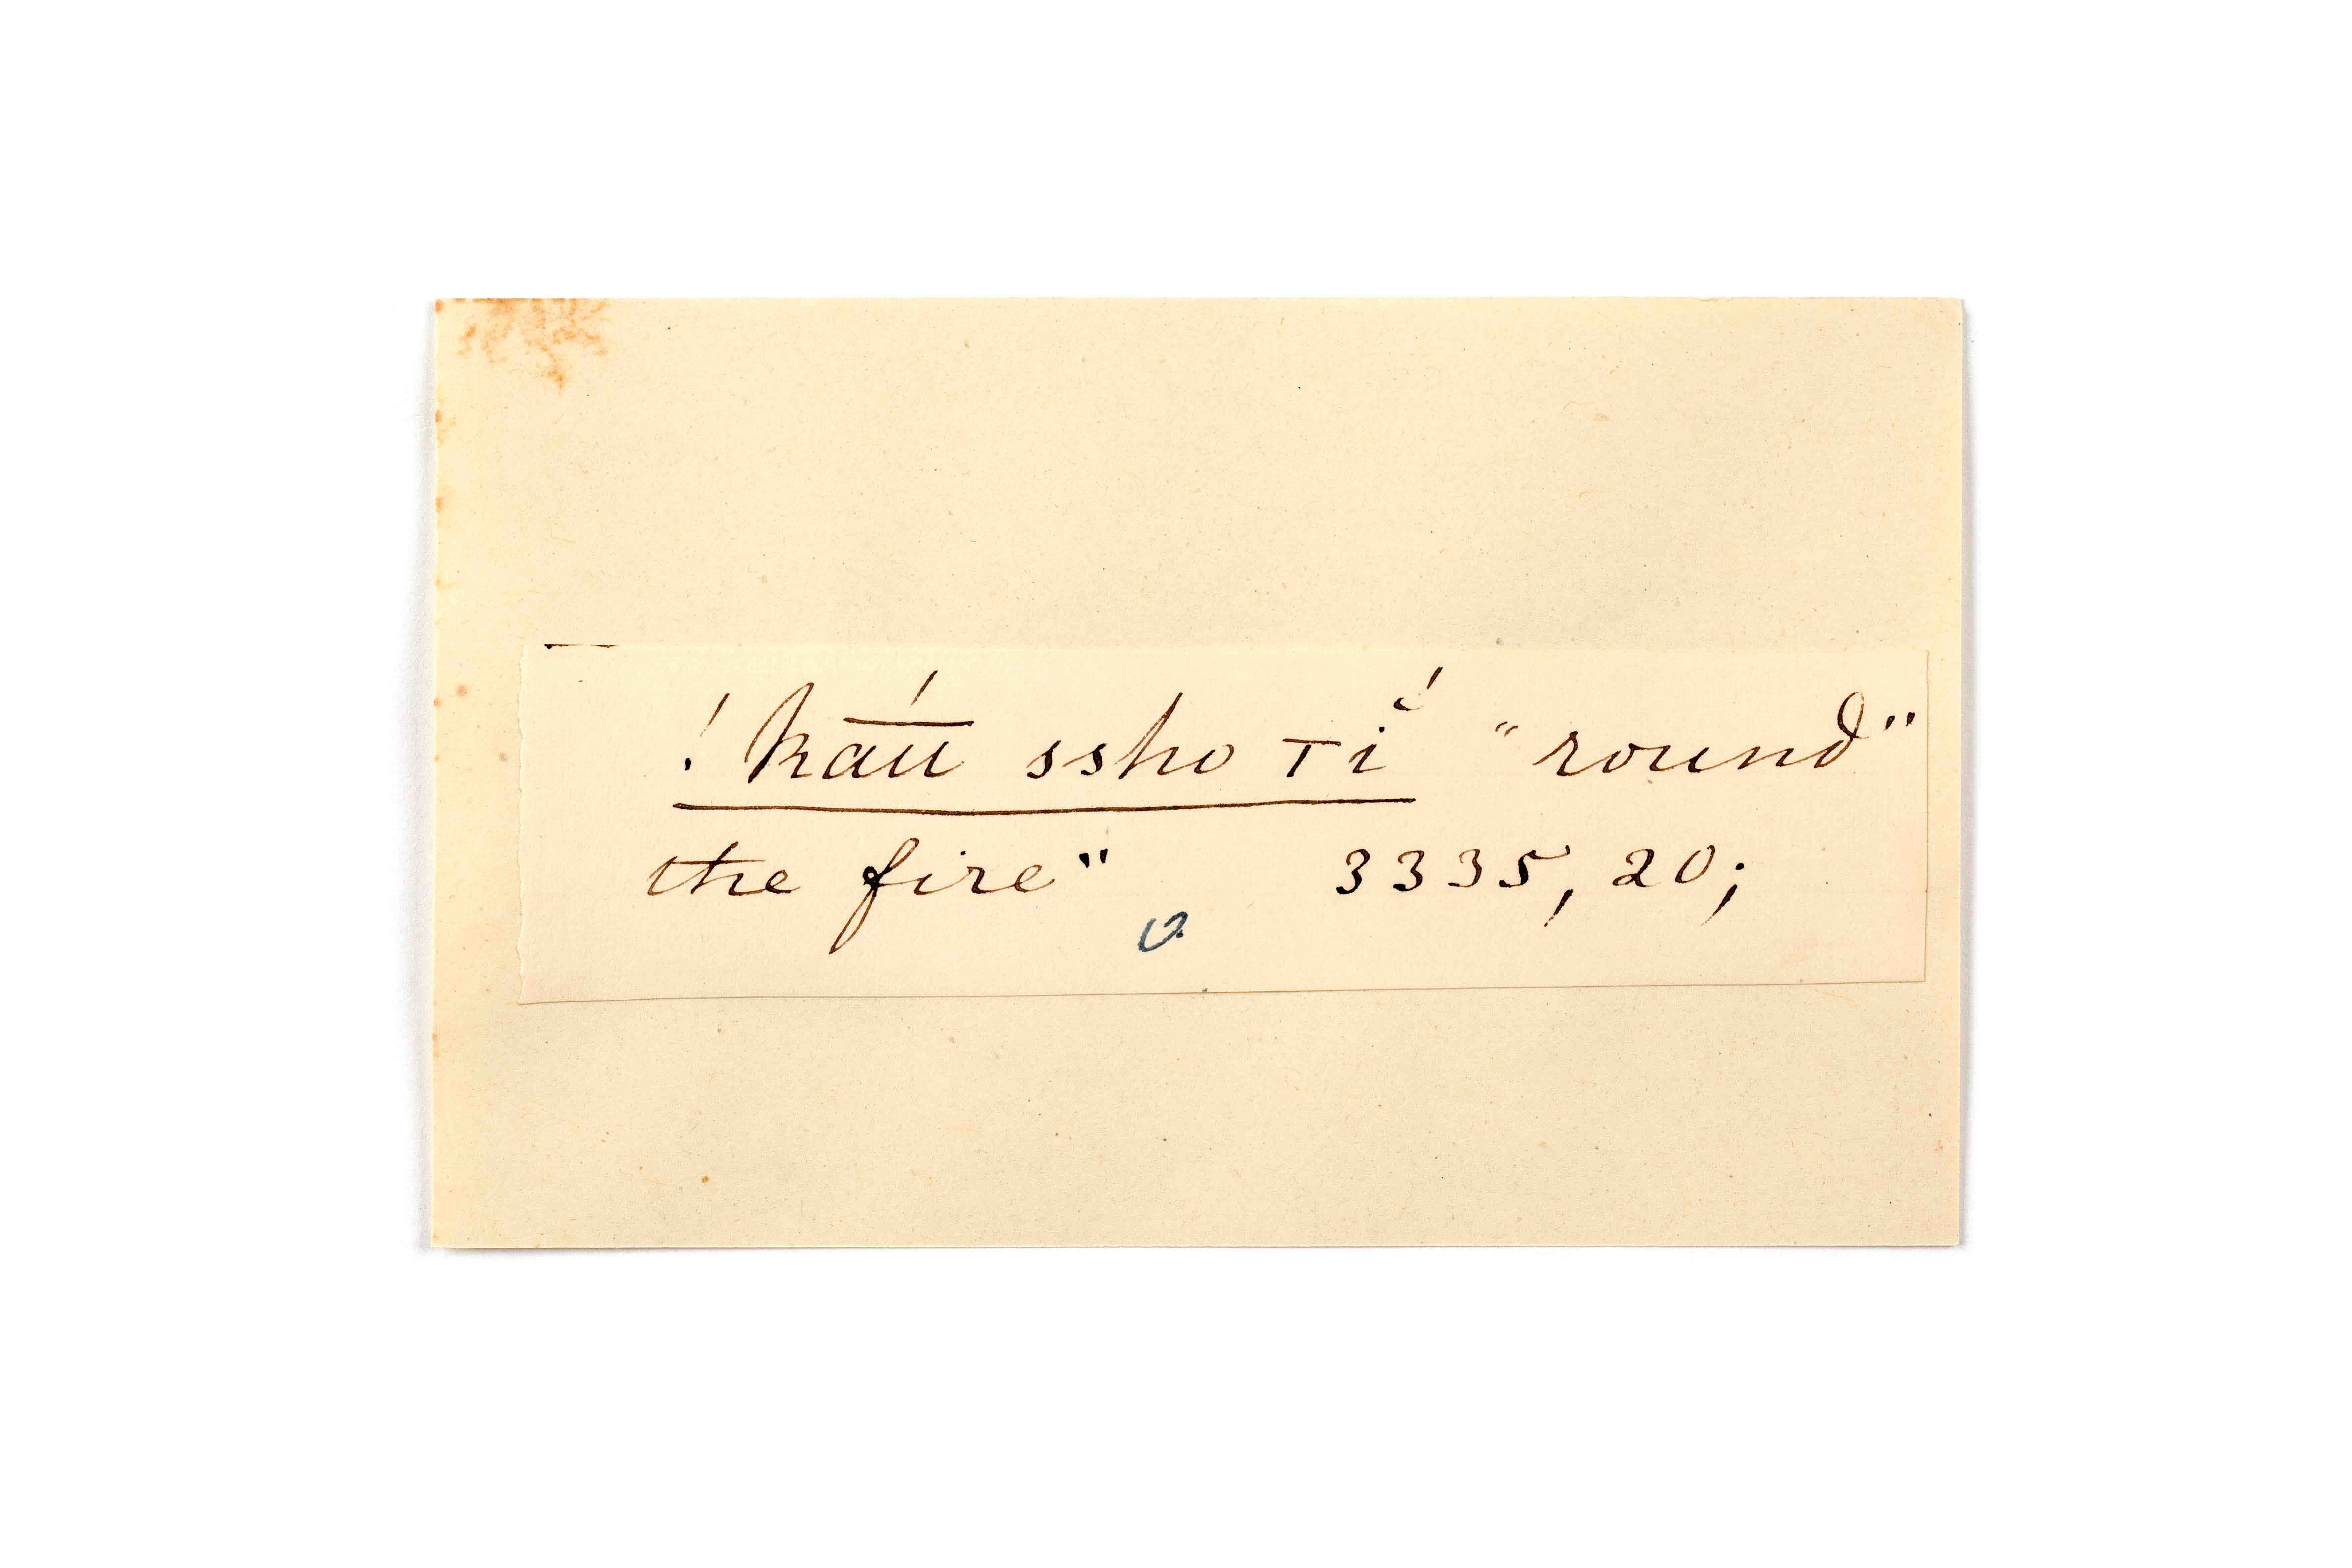 ! k͞áu ssho Ti̐́ "round"
the fire" 3335, 20;